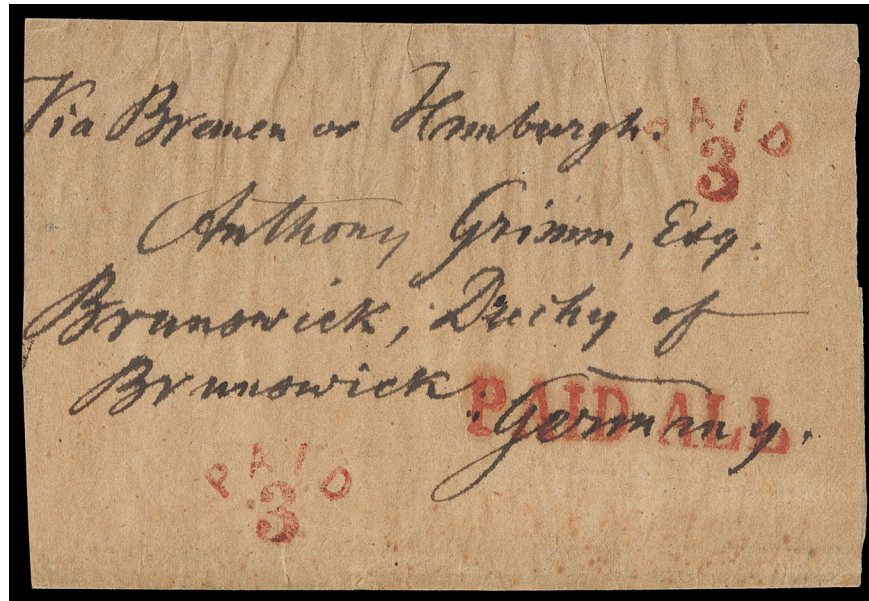 Via Bremen or Hamburgh.
PAID
3
Anthony Grimm, Esq.
Brunswick, Duchy of
Brunswick
PAID ALL
Germany.
PAID
3